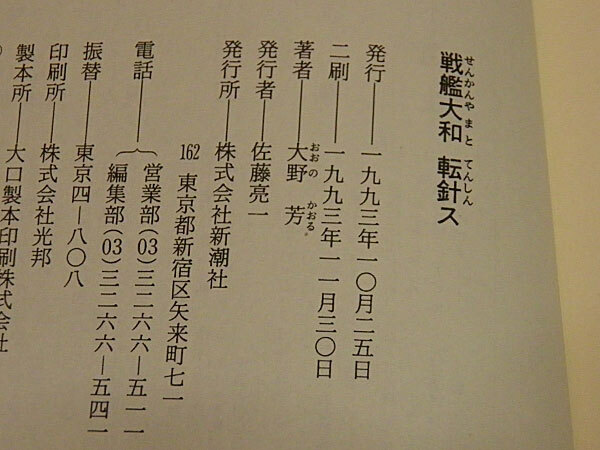 戦艦大和 転針ス
せんかんやまと てんしん
発行――一九九三年一〇月二五日
二刷――一九九三年一一月三〇日
著者――大野 芳
おおの かおる
発行者――佐藤亮一
発行所――株式会社新潮社
162 東京都新宿区矢来町七一
電話――営業部(03)三二六六―五一一一
編集部(03)三二六六―五四一一
振替――東京四―八〇八
印刷所――株式会社光邦
製本所――大口製本印刷株式会社